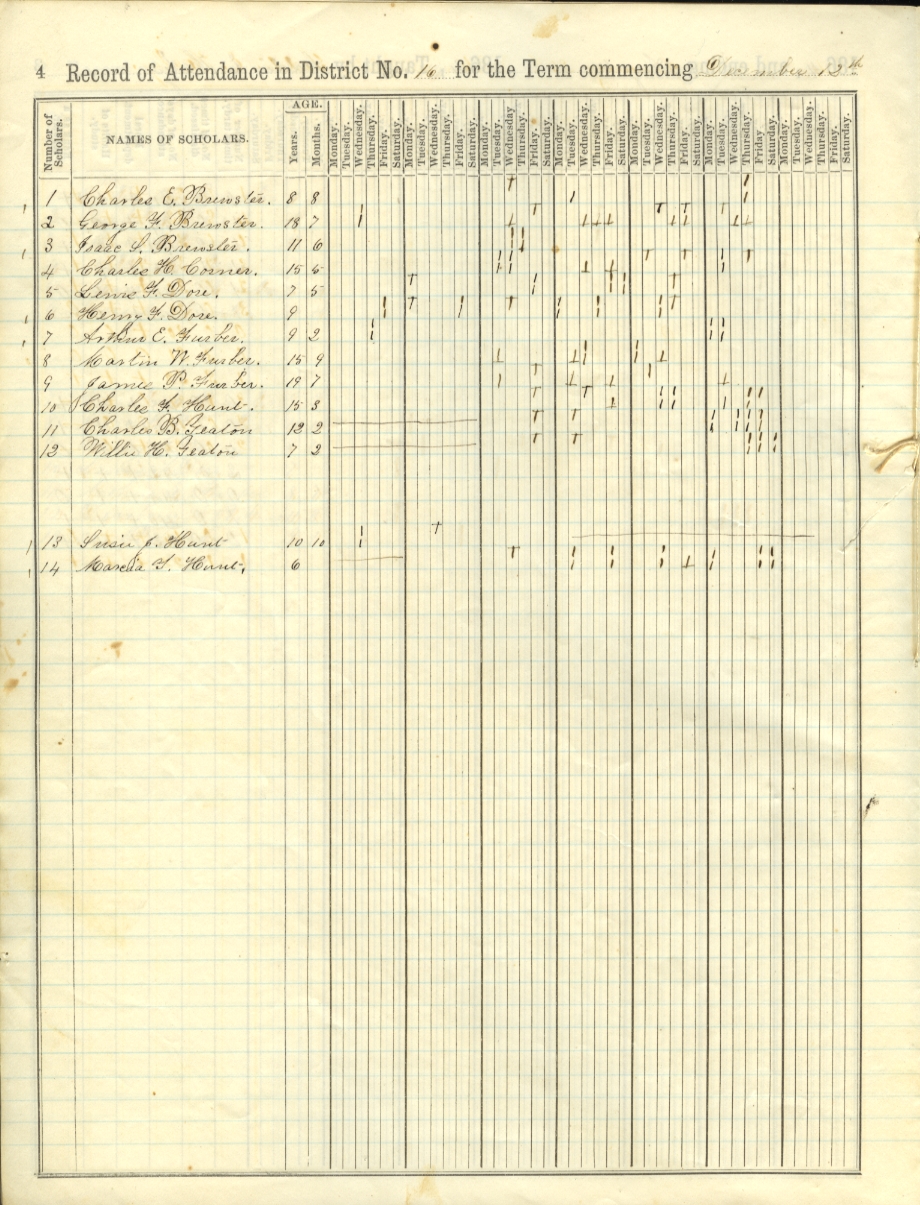 4 Record of Attendance in District No. 16 for the Term commencing December 12th
Number of Scholars. NAMES OF SCHOLARS. AGE. Years. Months. Monday. Tuesday. Wednesday. Thursday. Friday. Saturday. Monday. Tuesday. Wednesday. Thursday. Friday. Saturday. Monday. Tuesday. Wednesday Thursday. Friday. Saturday. Monday. Tuesday. Wednesday. Thursday. Friday. Saturday. Monday. Tuesday. Wednesday. Thursday. Friday. Saturday. Monday. Tuesday. Wednesday. Thursday. Friday Saturday. Monday. Tuesday. Wednesday. Thursday. Friday. Saturday.
1 Charles E. Brewster. 8 8
2 George F. Brewster. 18 7
3 Isaac S. Brewster. 11 6
4 Charles H. Corner. 15 5
5 Lewis F. Dore. 7 5
6 Henry F. Dore. 9
7 Arthur E. Furber. 9 2
8 Martin W. Furber. 15 9
9 James P. Furber. 19 7
10 Charles F. Hunt. 15 3
11 Charles B. Geaton 12 2
12 Willie H. Geaton 7 2
13 Susie J. Hunt 10 10
14 Marcia F. Hunt, 6